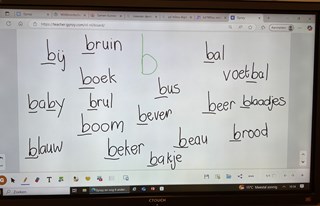 bij bruin b bal
boek voetbal
baby brul bus beer blaadjes
boom bever
blauw beker beau brood
bakje
Zoeken
CTOUCH